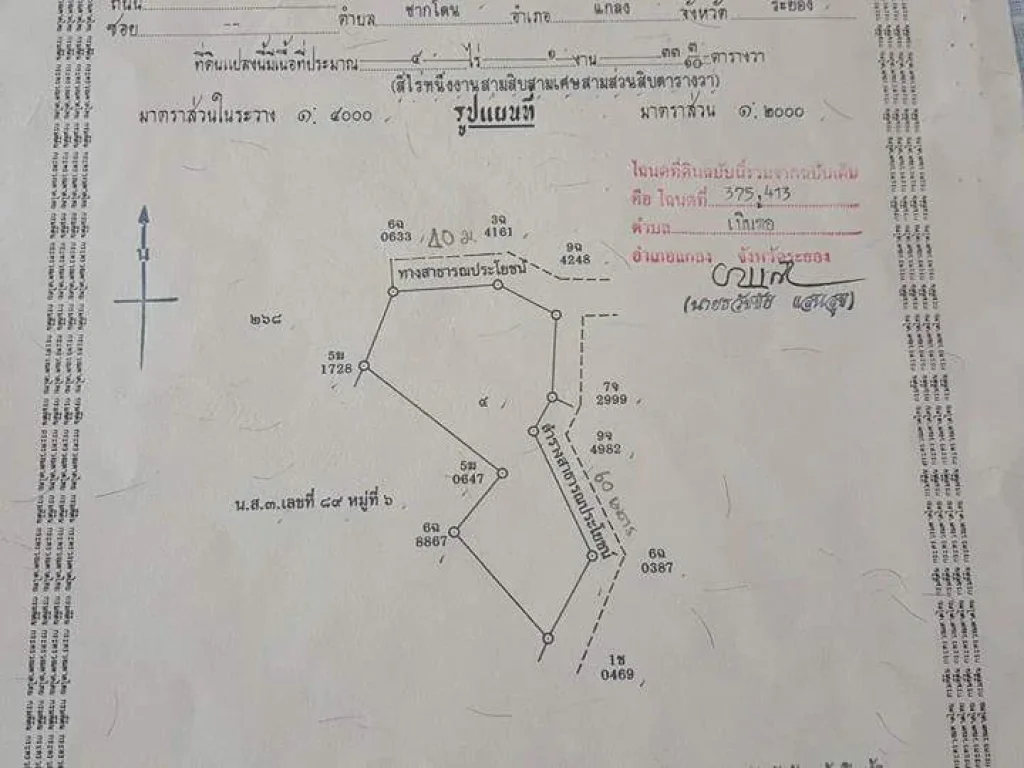 ถนน
ซอย -- ตำบล ชากโดน อำเภอ แกลง จังหวัด ระยอง
ที่ดินแปลงนี้มีเนื้อที่ประมาณ ๔ ไร่ ๑ งาน ๓๓ ๓/๑๐ ตารางวา
(สี่ไร่หนึ่งงานสามสิบสามเศษสามส่วนสิบตารางวา)
มาตราส่วนในระวาง ๑: ๔๐๐๐ รูปแผนที่ มาตราส่วน ๑: ๒๐๐๐
โฉนดที่ดินฉบับนี้รวมจากฉบับเดิม
คือ โฉนดที่ 375,413
ตำบล
อำเภอแกลง จังหวัดระยอง
6ฉ
0633
40 ม
3ฉ
4161
9ฉ
4248
ทางสาธารณประโยชน์
น
๒๖๘
5ฆ
1728
๔
7จ
2999
9จ
4982
ลำรางสาธารณประโยชน์
60 เมตร
5ฆ
0647
น.ส.๓.เลขที่ ๘๙ หมู่ที่ ๖
6ฉ
8867
6ฉ
0387
1ช
0469